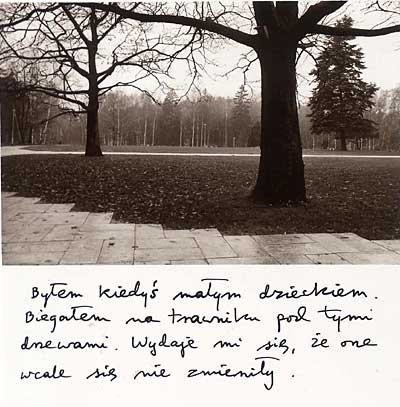 Byłem kiedyś małym dzieckiem.
Biegałem na trawniku pod tymi
drzewami. Wydaje mi się, że one
wcale się nie zmieniły.